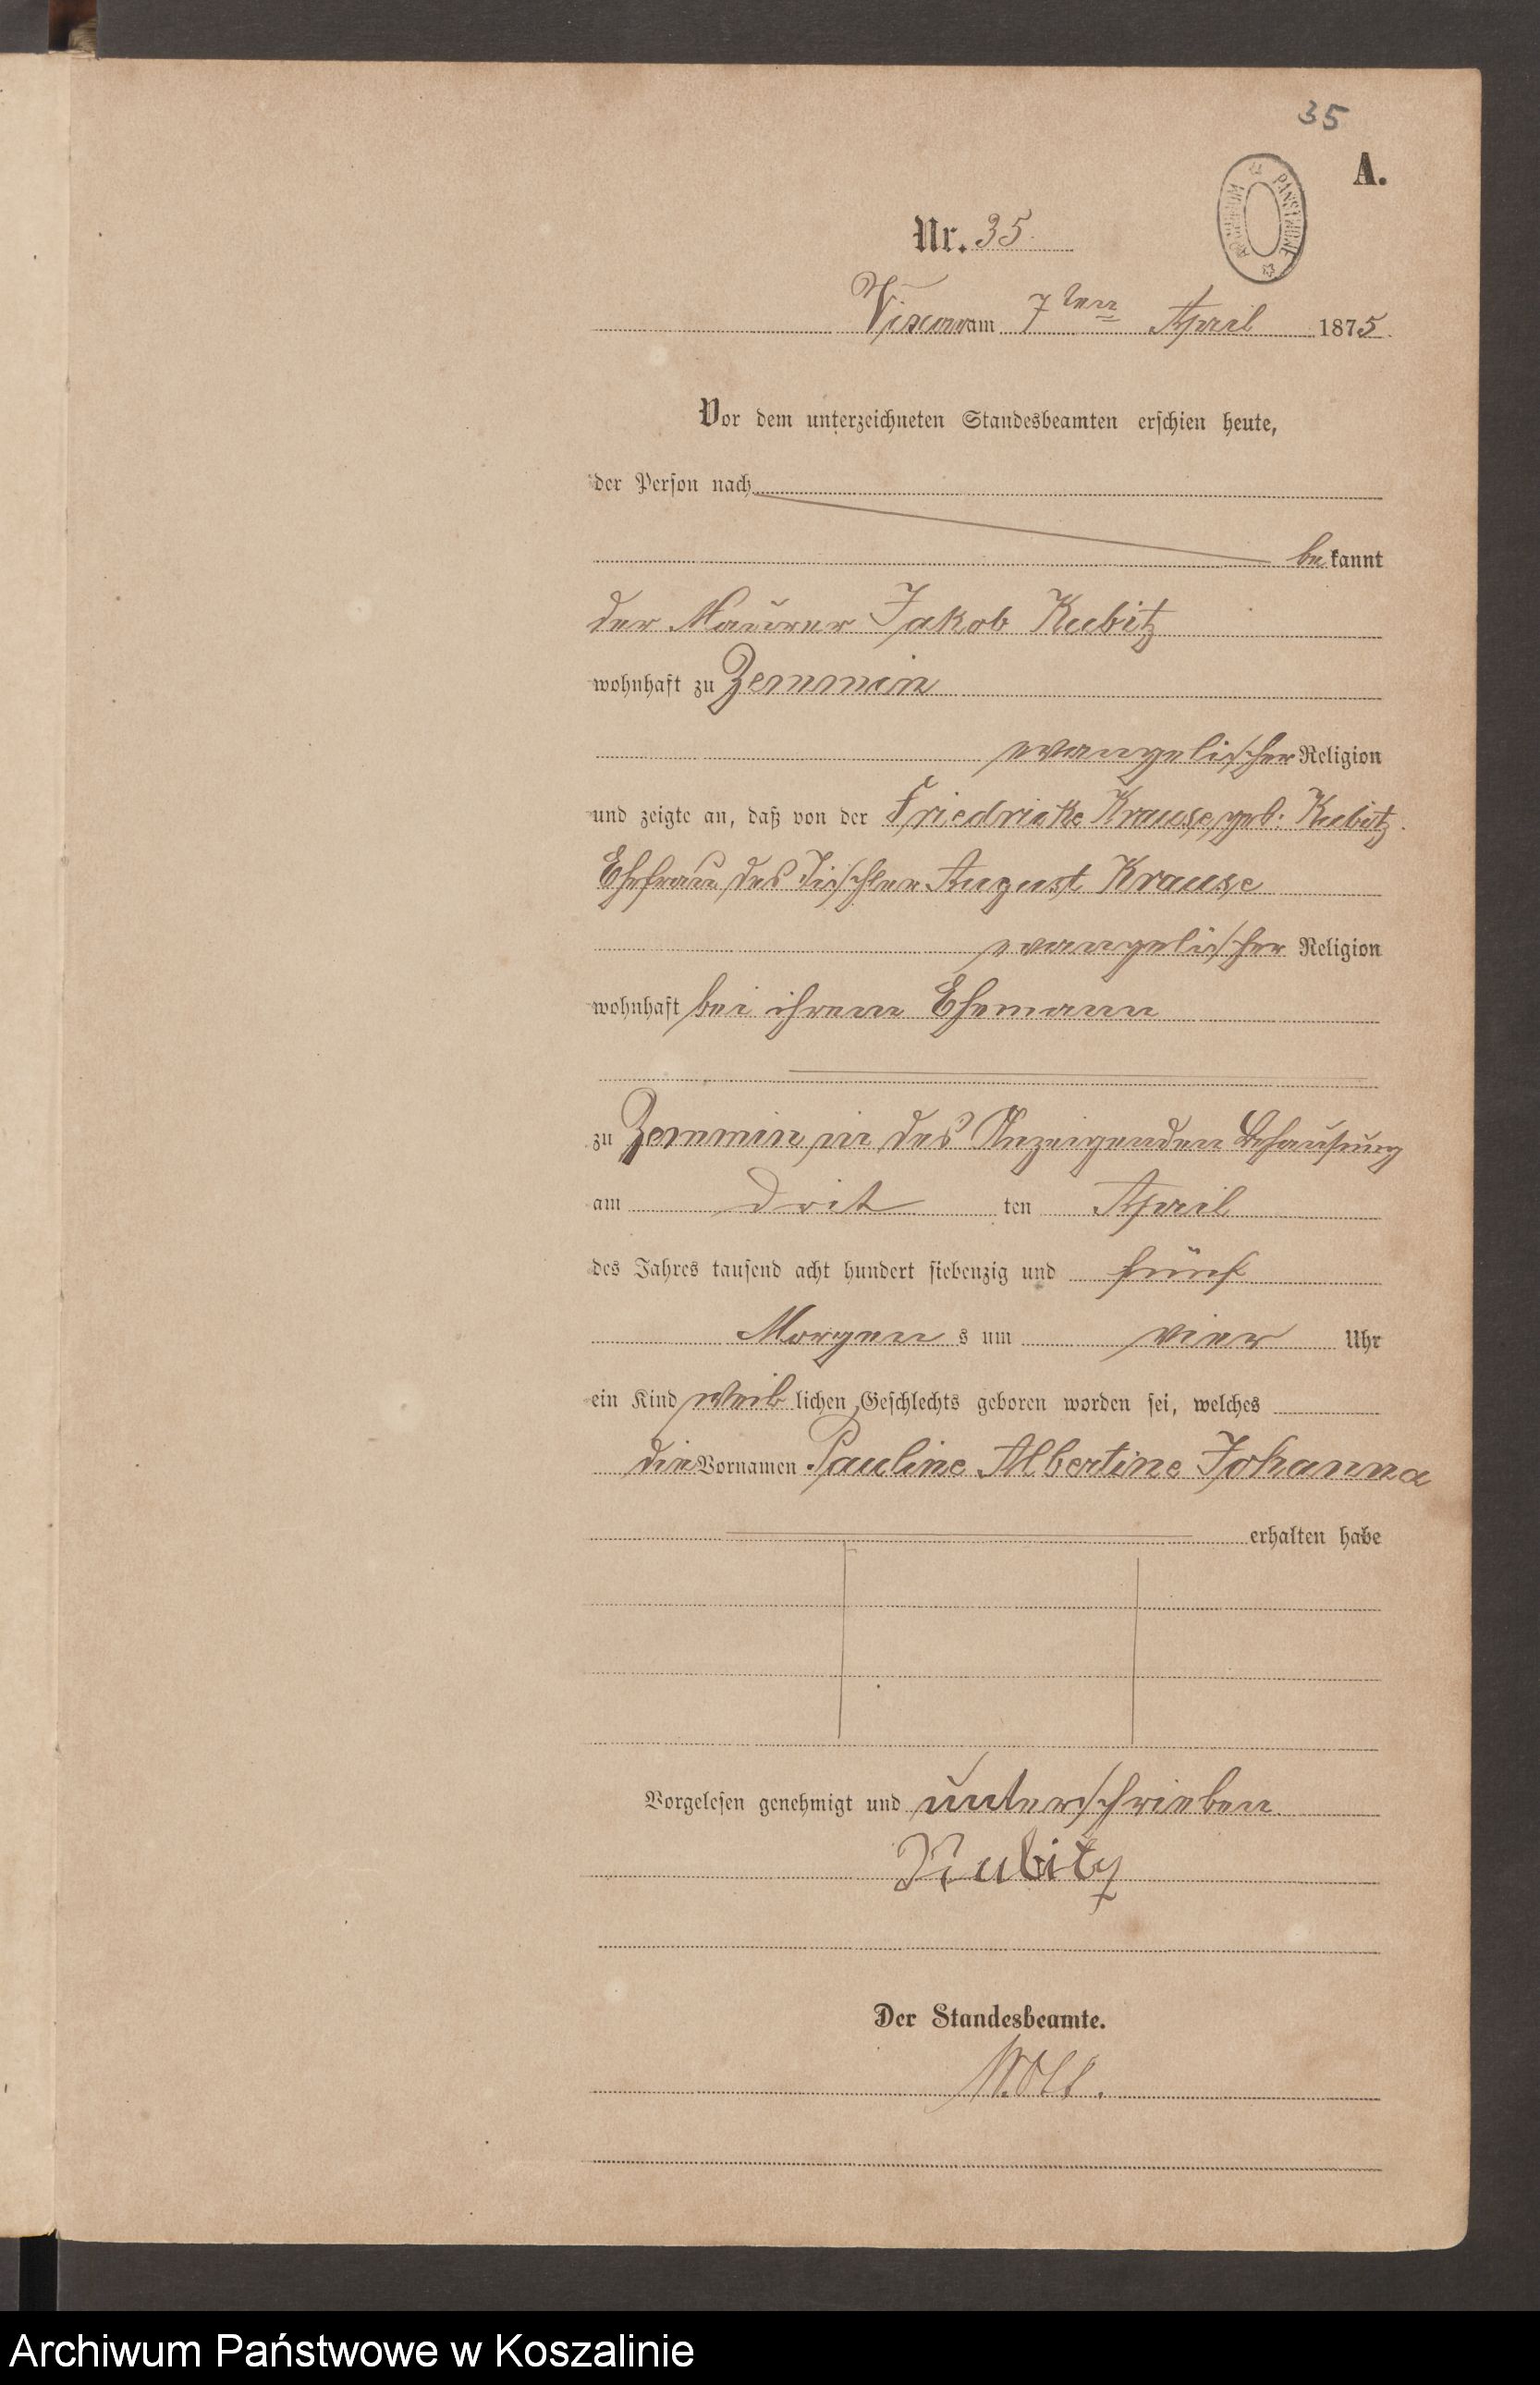 35
A.
Nr. 35.
am 7ten April 1875.
Vor dem unterzeichneten Standesbeamten erschien heute,
der Person nach
bekannt
der Maurer Jakob Kubitz
wohnhaft zu Zemmin
evangelischer Religion
und zeigte an, daß von der Friedricke Krause, geb. Kubitz.
Ehefrau des Tischler August Krause
evangelischer Religion
wohnhaft bei ihrem Ehemann
zu Zemmin in des Anzeigenden Behausung
am dritten April
des Jahres tausend acht hundert siebenzig und fünf
Morgens um vier Uhr
ein Kind weiblichen Geschlechts geboren worden sei, welches
die Vornamen Pauline Albertine Johanna
erhalten habe
Vorgelesen genehmigt und unterschrieben
Kubitz
Der Standesbeamte.
Archiwum Państwowe w Koszalinie